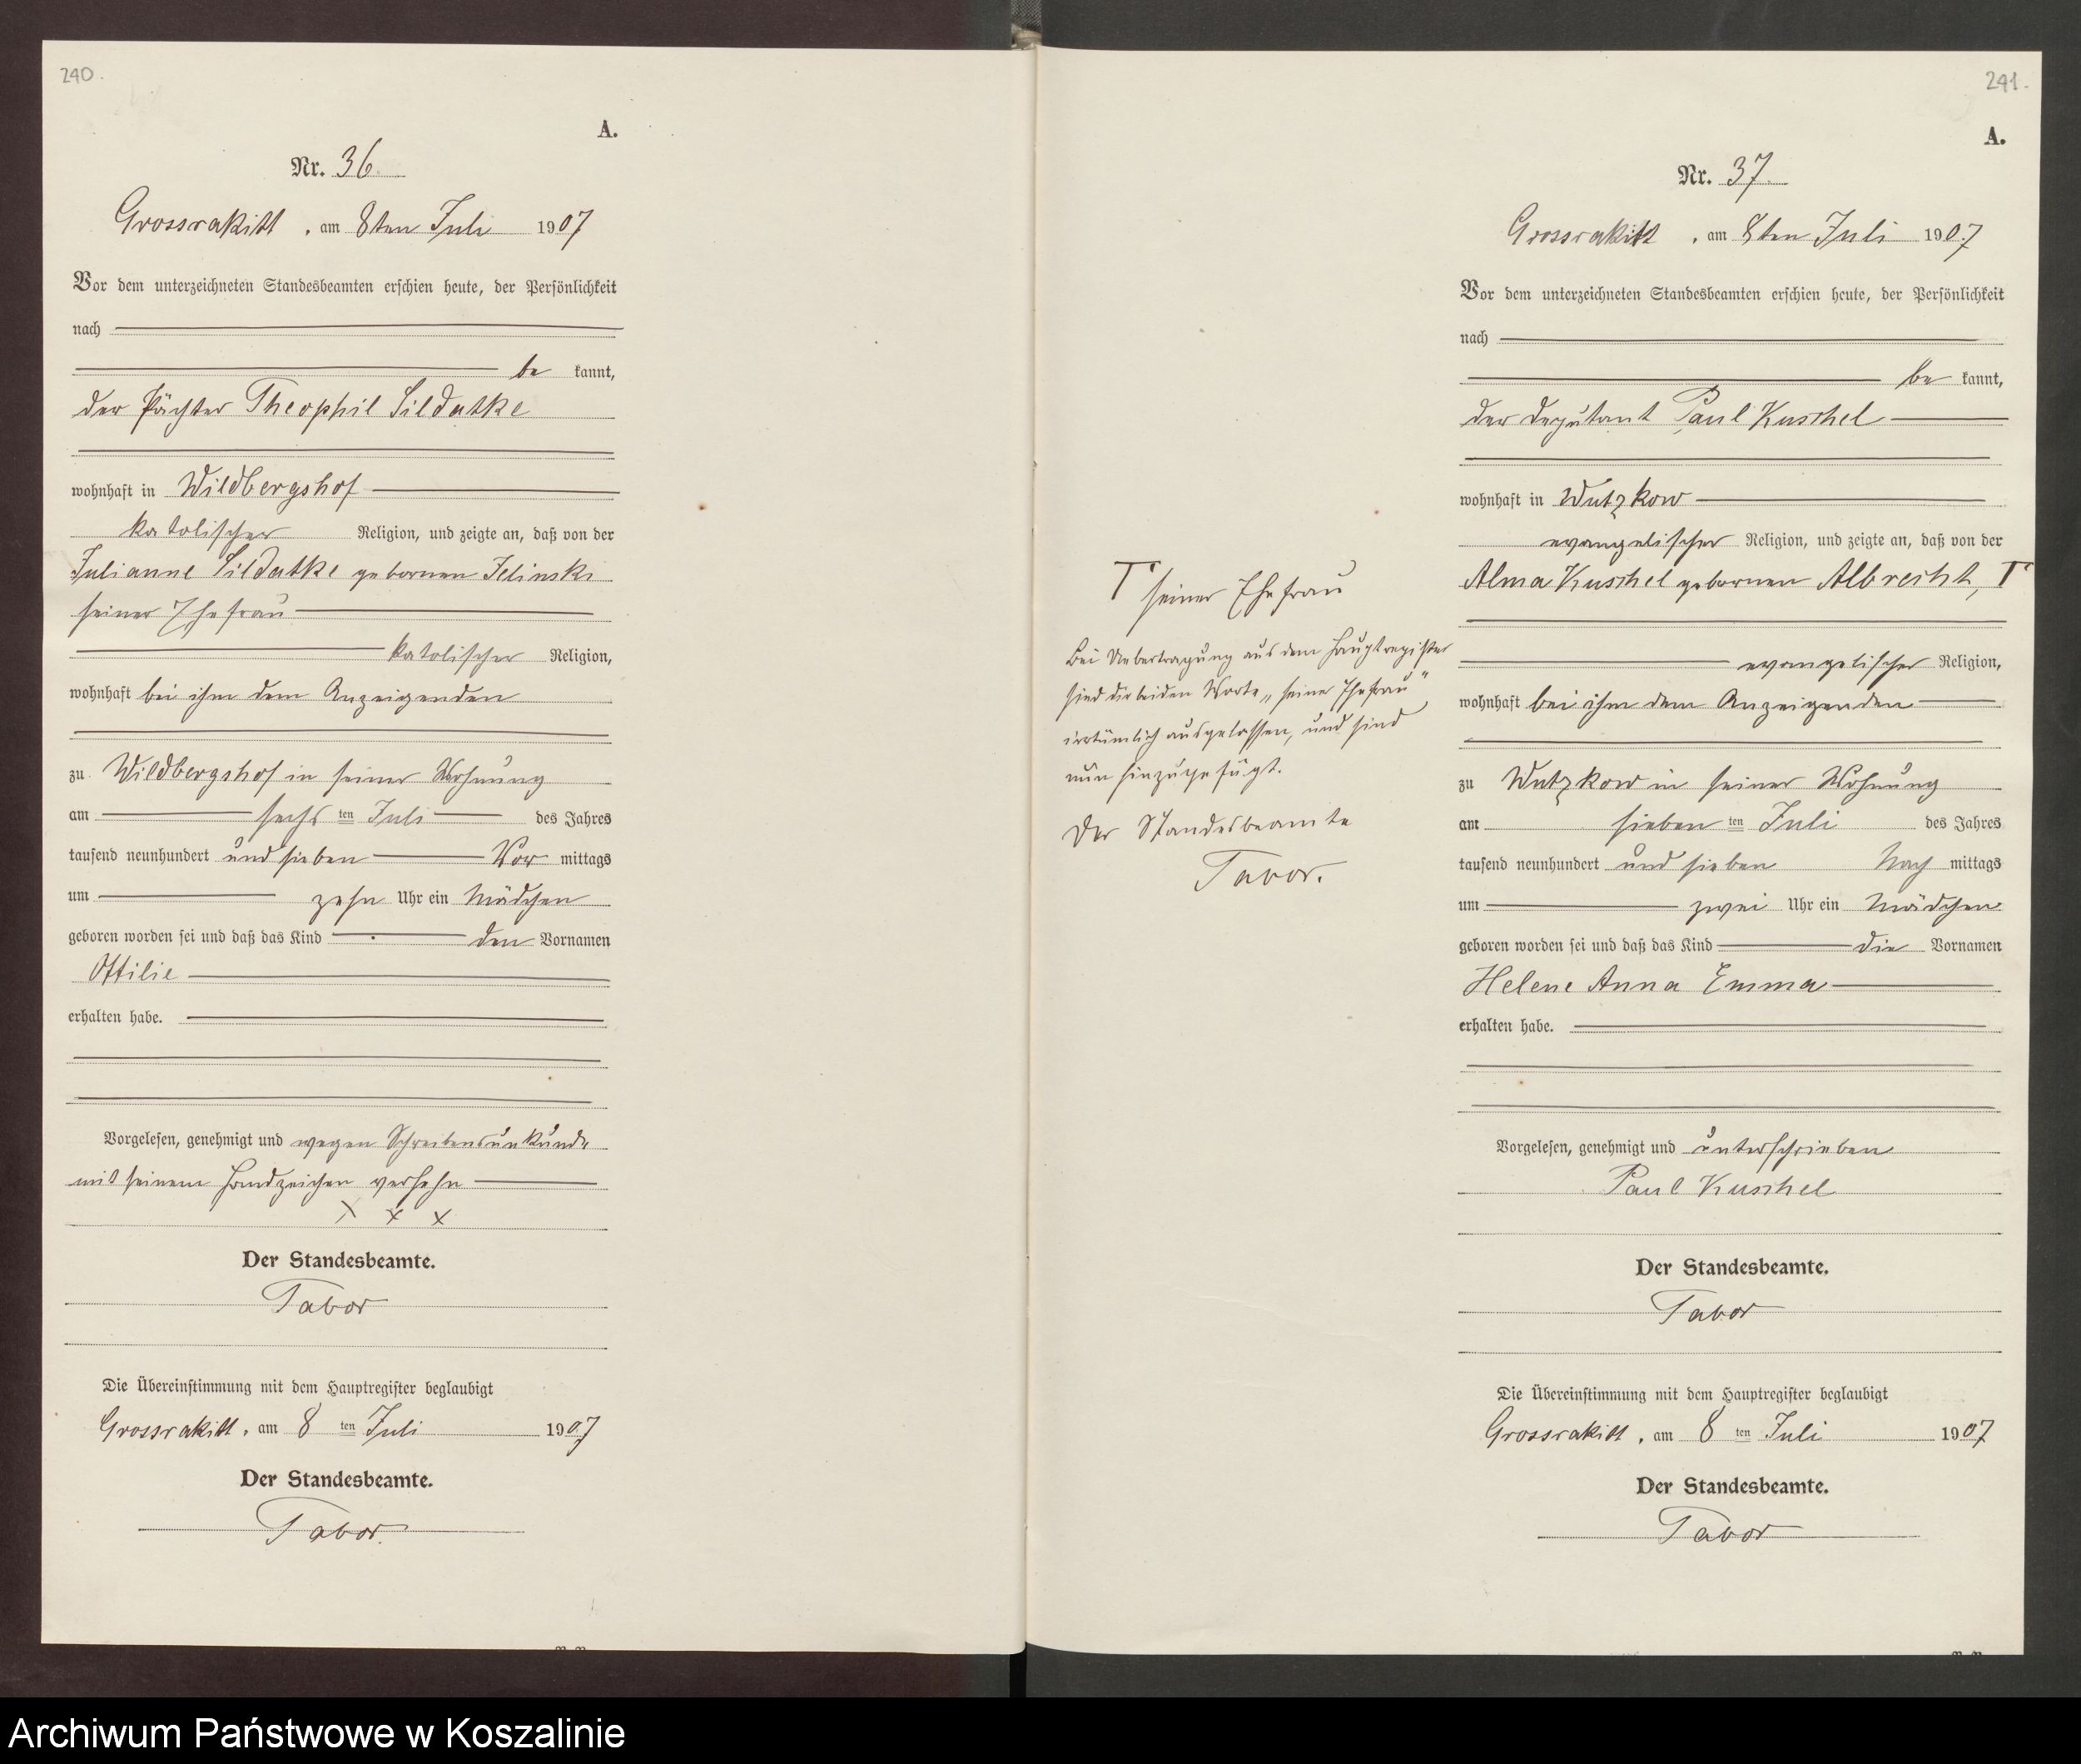 240.
A.
Nr. 36.
Grossrakitt, am 8ten Juli 1907
Vor dem unterzeichneten Standesbeamten erschien heute, der Persönlichkeit
nach
be kannt,
der Pächter Theophil Sildatke
wohnhaft in Wildbergshof
katolischer Religion, und zeigte an, daß von der
Julianne Sildatke gebornen Jelinski
seiner Ehefrau
katolischer Religion,
wohnhaft bei ihm dem Anzeigenden
zu Wildbergshof in seiner Wohnung
am sechs ten Juli des Jahres
tausend neunhundert und sieben Vor mittags
um zehn Uhr ein Mädchen
geboren worden sei und daß das Kind den Vornamen
Ottilie
erhalten habe.
Vorgelesen, genehmigt und wegen Schreibensunkunde
mit seinem Handzeichen versehn
x x x
Der Standesbeamte.
Tabor
Die Übereinstimmung mit dem Hauptregister beglaubigt
Grossrakitt, am 8 ten Juli 1907
Der Standesbeamte.
Tabor.
241.
A.
Nr. 37.
Grossrakitt, am 8ten Juli 1907
Vor dem unterzeichneten Standesbeamten erschien heute, der Persönlichkeit
nach
be kannt,
der Deputant Paul Kuschel
wohnhaft in Wutzkow
evangelischer Religion, und zeigte an, daß von der
Alma Kuschel gebornen Albrecht, T
evangelischer Religion,
wohnhaft bei ihm dem Anzeigenden
zu Wutzkow in seiner Wohnung
am sieben ten Juli des Jahres
tausend neunhundert und sieben Nach mittags
um zwei Uhr ein Mädchen
geboren worden sei und daß das Kind die Vornamen
Helene Anna Emma
erhalten habe.
Vorgelesen, genehmigt und unterschrieben
Paul Kuschel
Der Standesbeamte.
Tabor
Die Übereinstimmung mit dem Hauptregister beglaubigt
Grossrakitt, am 8 ten Juli 1907
Der Standesbeamte.
Tabor
T seiner Ehefrau
Bei Uebertragung aus dem Hauptregister
sind die beiden Worte „seiner Ehefrau"
irrtümlich ausgelassen, und sind
nun hinzugefügt.
Der Standesbeamte
Tabor.
Archiwum Państwowe w Koszalinie